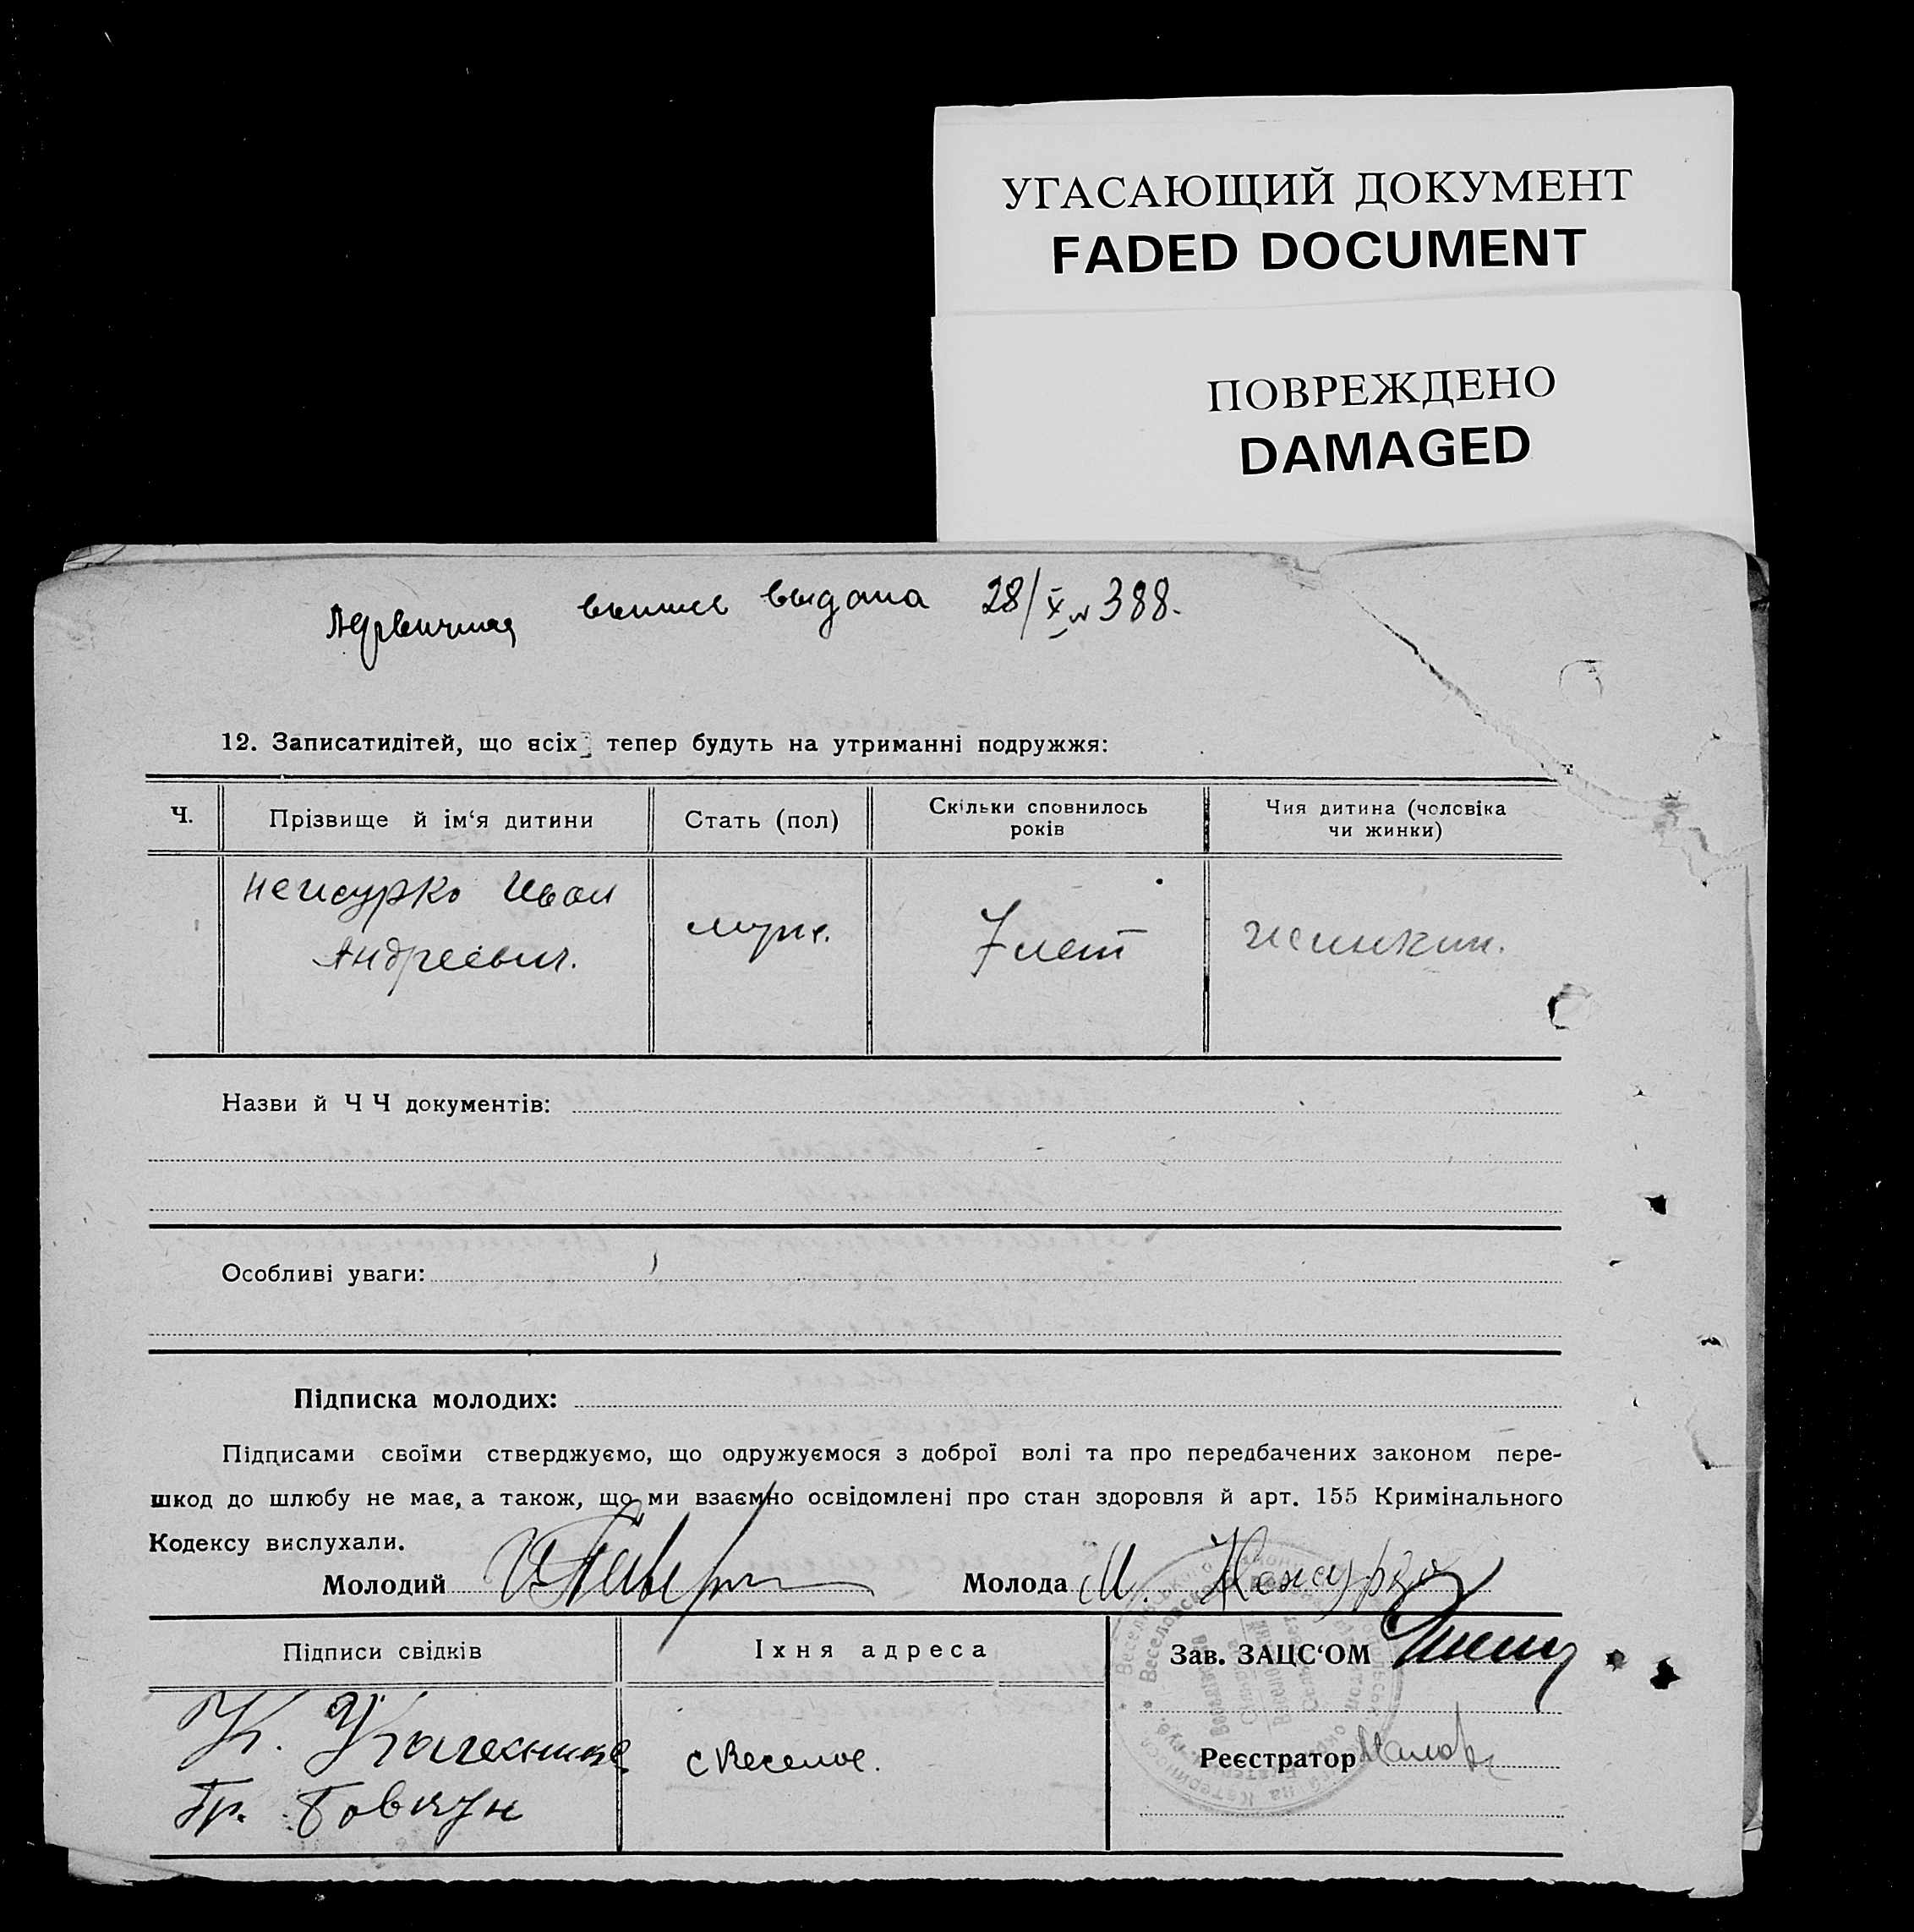 УГАСАЮЩИЙ ДОКУМЕНТ
FADED DOCUMENT
ПОВРЕЖДЕНО
DAMAGED
Первичная выпись выдана 28/X № 388.
12. Записатидітей, що всіх тепер будуть на утриманні подружжя:
Ч.
Прізвище й ім‘я дитини
Стать (пол)
Скільки сповнилось
років
Чия дитина (чоловіка
чи жинки)
Иван
Андреевич.
муж.
7 лет
жинкин.
Назви й Ч Ч документів:
Особливі уваги:
Підписка молодих:
Підписами своїми стверджуємо, що одружуємося з доброї волі та про передбачених законом пере-
шкод до шлюбу не має, а також, що ми взаємно освідомлені про стан здоровля й арт. 155 Кримінального
Кодексу вислухали.
Молодий
Молода М.
Підписи свідків
Їхня адреса
Зав. ЗАЦС‘ОМ
К.
с Веселое.
Реєстратор
Гр. Бовкун